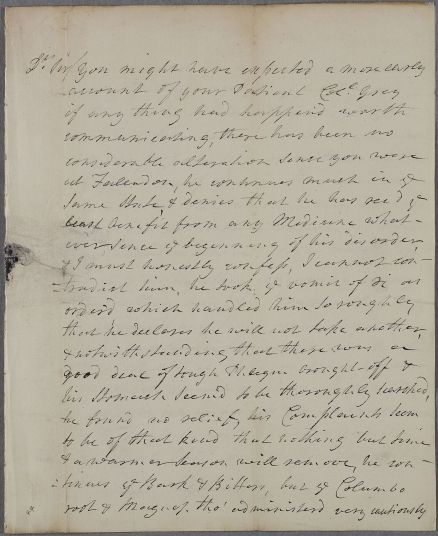 Dr Sir/ you might have expected a more early
account of your Patient Coll Grey
if any thing had happen'd worth
communicating, there has been no
considerable alteration since you were
at Falondon, he continues much in ye
same state & denies that he has rec'd ye
least benefit from any Medicine what-
ever since ye beginning of his disorder
& I must honestly confess, I cannot con-
tradict him, he took ye vomit of as
order'd which handled him so roughly
that he declares he will not take another,
& notwithstanding, that there was a
good deal of tough Phlegm brought off &
his stomach seem'd to be thoroughly
he found no relief, his Complaints seem
to be of that kind that nothing but time
& a warmer season will remove, he con-
tinues ye Bark & Bitters, but ye Columbo
root & Magnes. tho' administer'd very cautiously